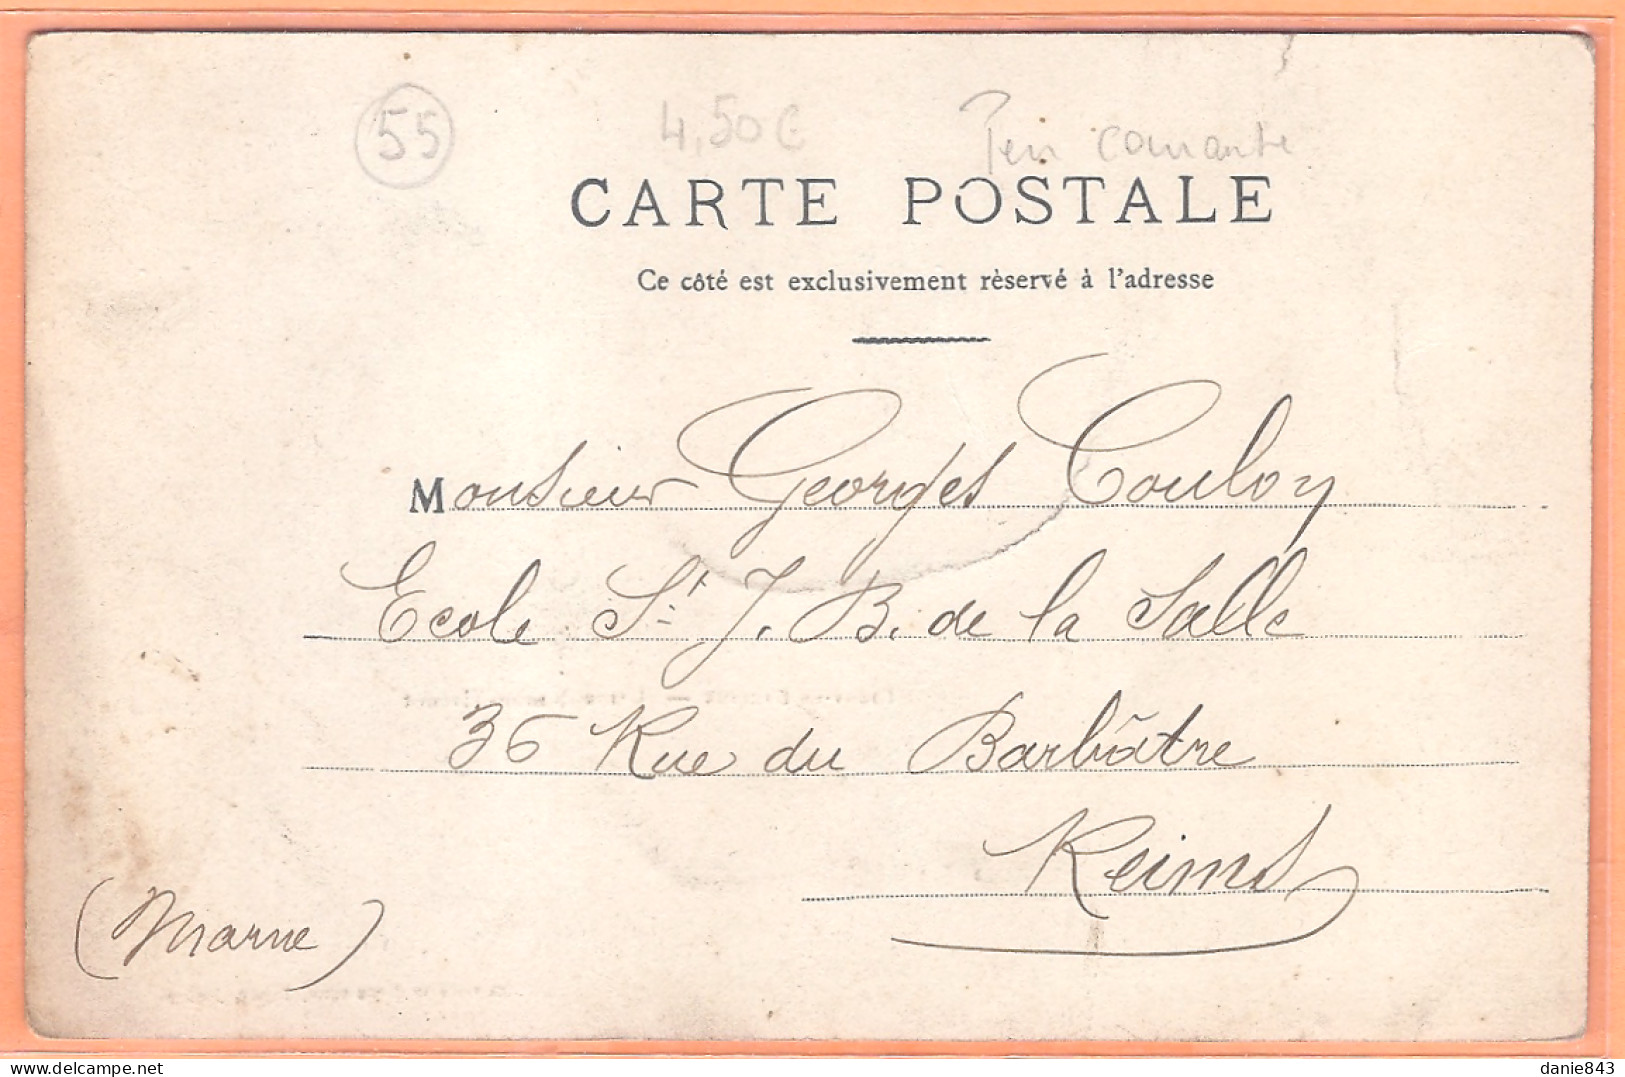 55
4,50€
Peu courante
CARTE POSTALE
Ce côté est exclusivement rèservé à l'adresse
Monsieur Georges Couloy
Ecole St. J. B. de la Salle
36 Rue du Barbâtre
Reims
(Marne)
delcampe.net
danie843